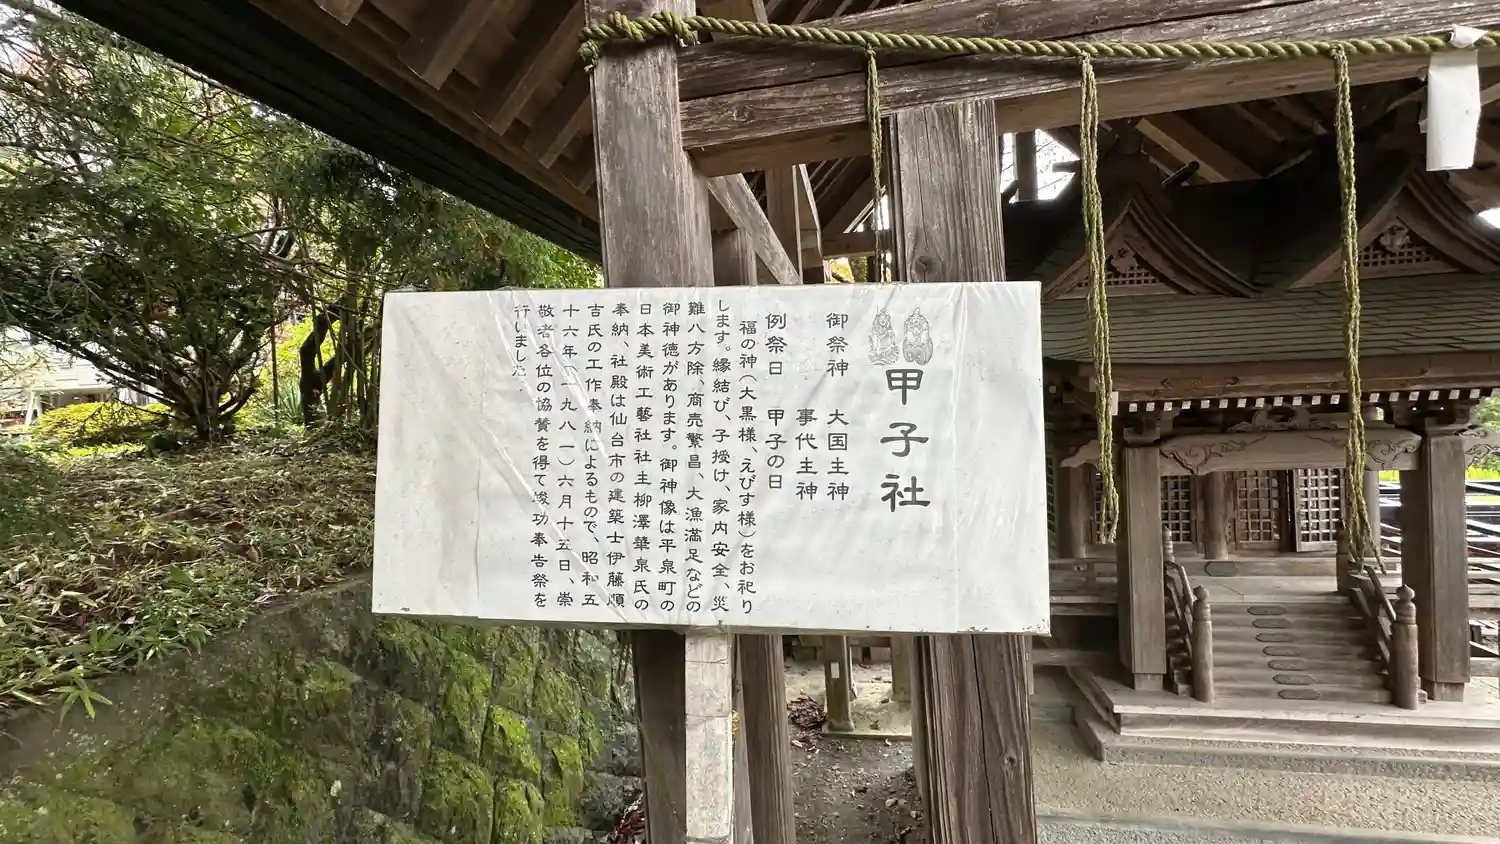 甲子社
御祭神　大国主神
事代主神
例祭日　甲子の日
福の神（大黒様、えびす様）をお祀り
します。縁結び、子授け、家内安全、災
難八方除、商売繁昌、大漁満足などの
御神徳があります。御神像は平泉町の
日本美術工藝社社主柳澤華泉氏の
奉納、社殿は仙台市の建築士伊藤順
吉氏の工作奉納によるもので、昭和五
十六年（一九八一）六月十五日、崇
敬者各位の協賛を得て竣功奉告祭を
行いました。